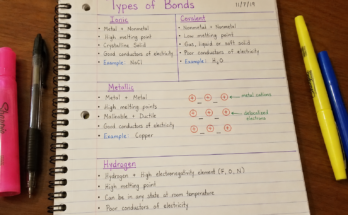 Types of Bonds
11/9/19
Ionic
• Metal + Nonmetal
• High melting point
• Crystalline Solid
• Good conductors of electricity
• Example: NaCl
Covalent
• Nonmetal + Nonmetal
• Low melting point
• Gas, liquid or soft solid
• Poor conductors of electricity
• Example: H₂O
Metallic
• Metal + Metal
• High melting points
• Malleable + Ductile
• Good conductors of electricity
• Example: Copper
metal cations
delocalized
electrons
Hydrogen
• Hydrogen + High electronegativity element (F, O, N)
• High melting point
• Can be in any state at room temperature
• Poor conductors of electricity
Sharpie